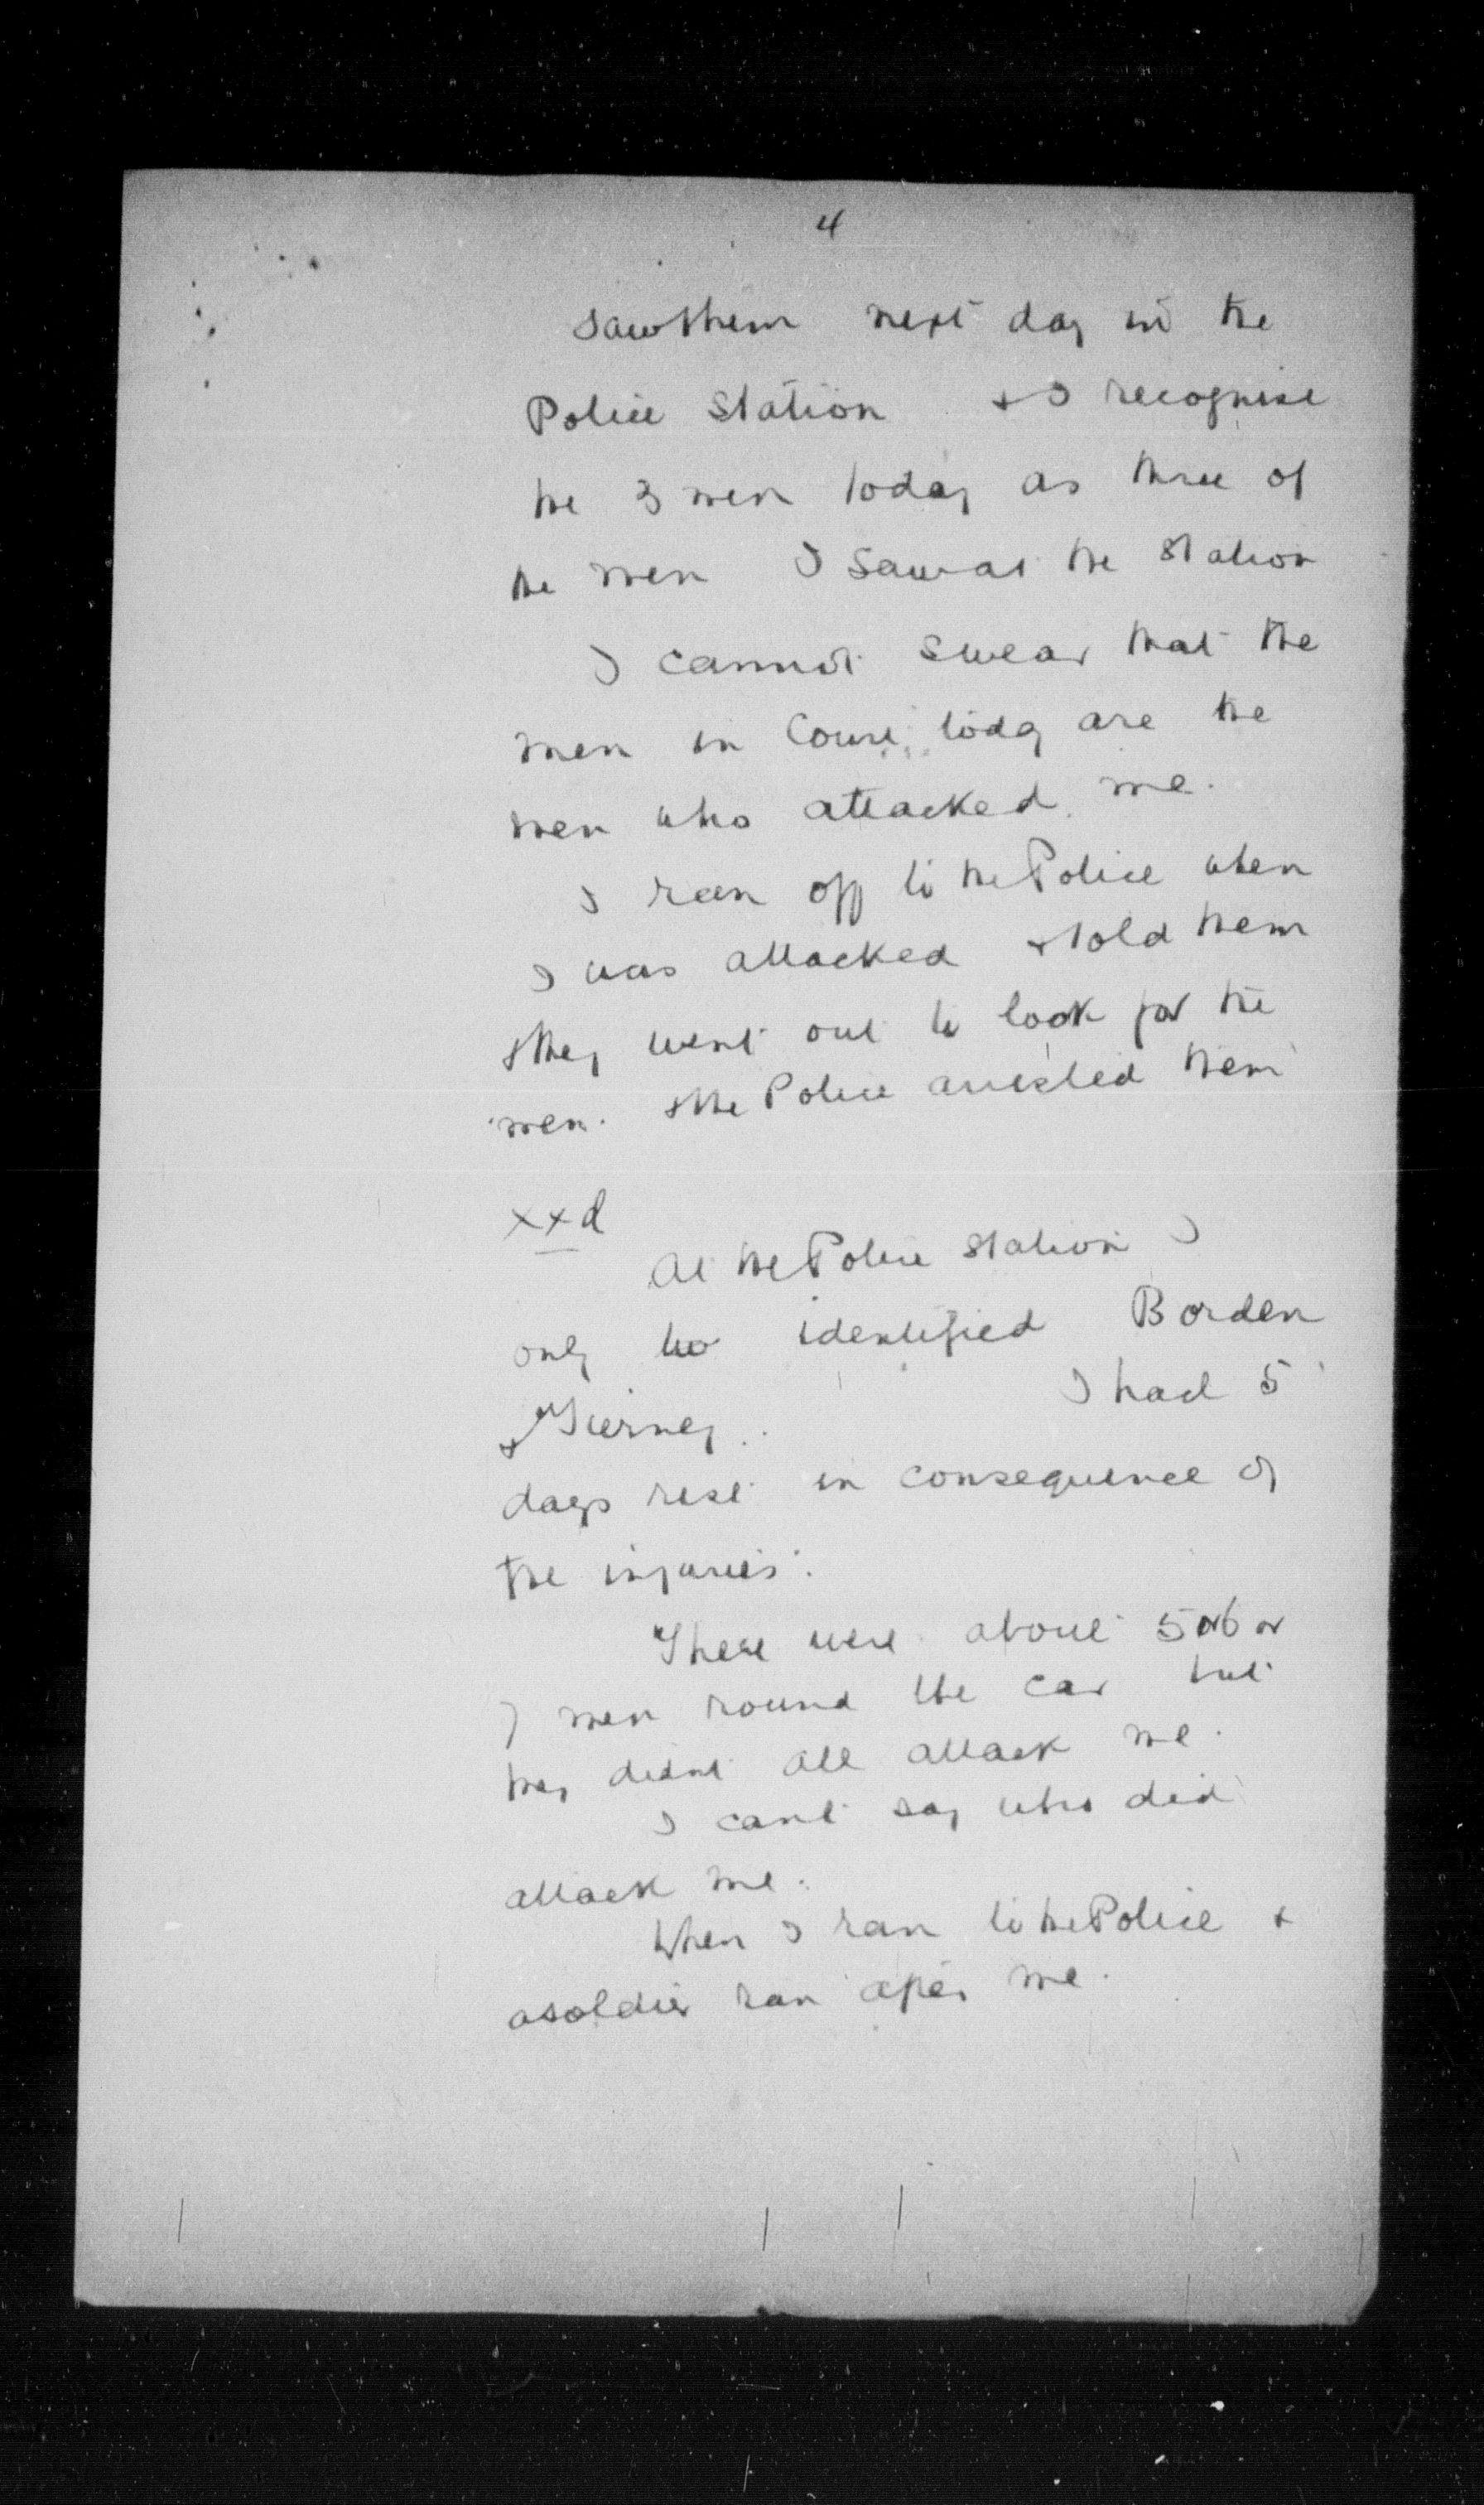 4
saw them next day in the
Police Station & I recognise
the 3 men today as three of
the men I saw at the Station
I cannot swear that the
men in Court today are the
men who attacked me.
I ran off to the Police when
I was attacked & told them
& they went out to look for the
men. & the Police arrested them
xxd
At the Police Station I
only identified Borden
& Tierney. I had 5
days rest in consequence of
the injuries.
There were about 5 or 6 or
7 men round the car but
they didnt all attack me.
I cant say who did
attack me.
When I ran to the Police
a soldier ran after me.